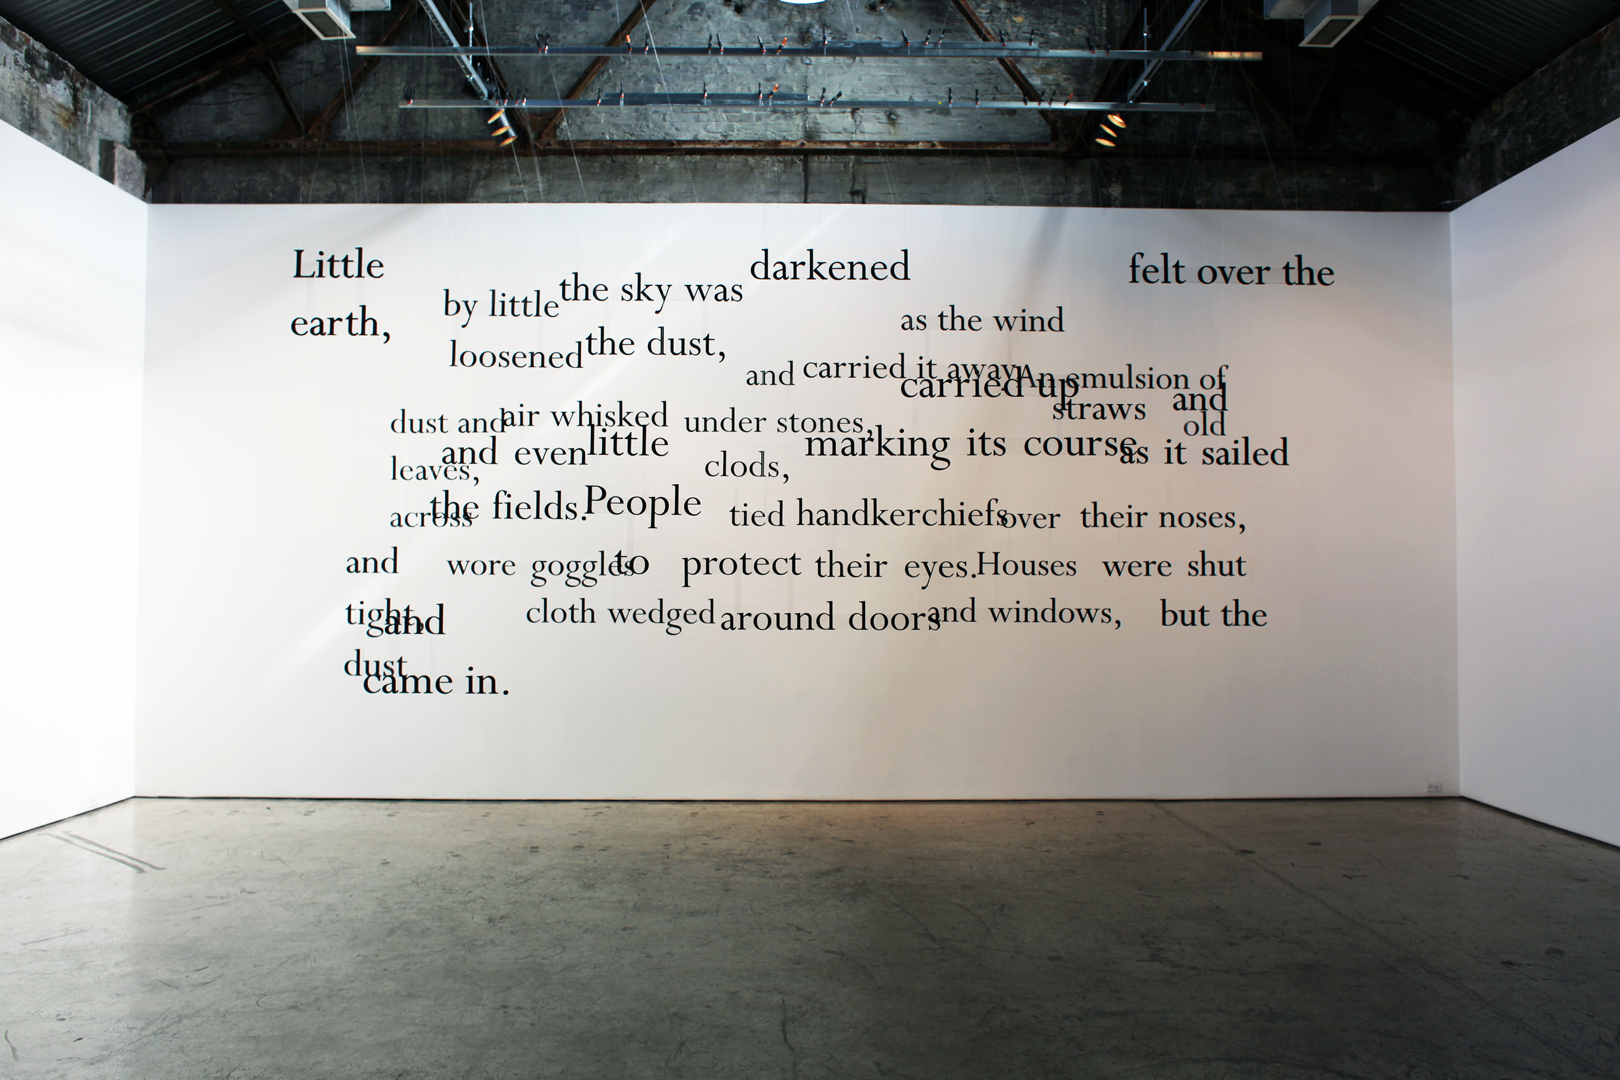 Little by little the sky was darkened as the wind felt over the
earth, loosened the dust, and carried it away. An emulsion of
dust and air whisked under stones, carried up straws and old
leaves, and even little clods, marking its course as it sailed
across the fields. People tied handkerchiefs over their noses,
and wore goggles to protect their eyes. Houses were shut
tight, and cloth wedged around doors and windows, but the
dust came in.